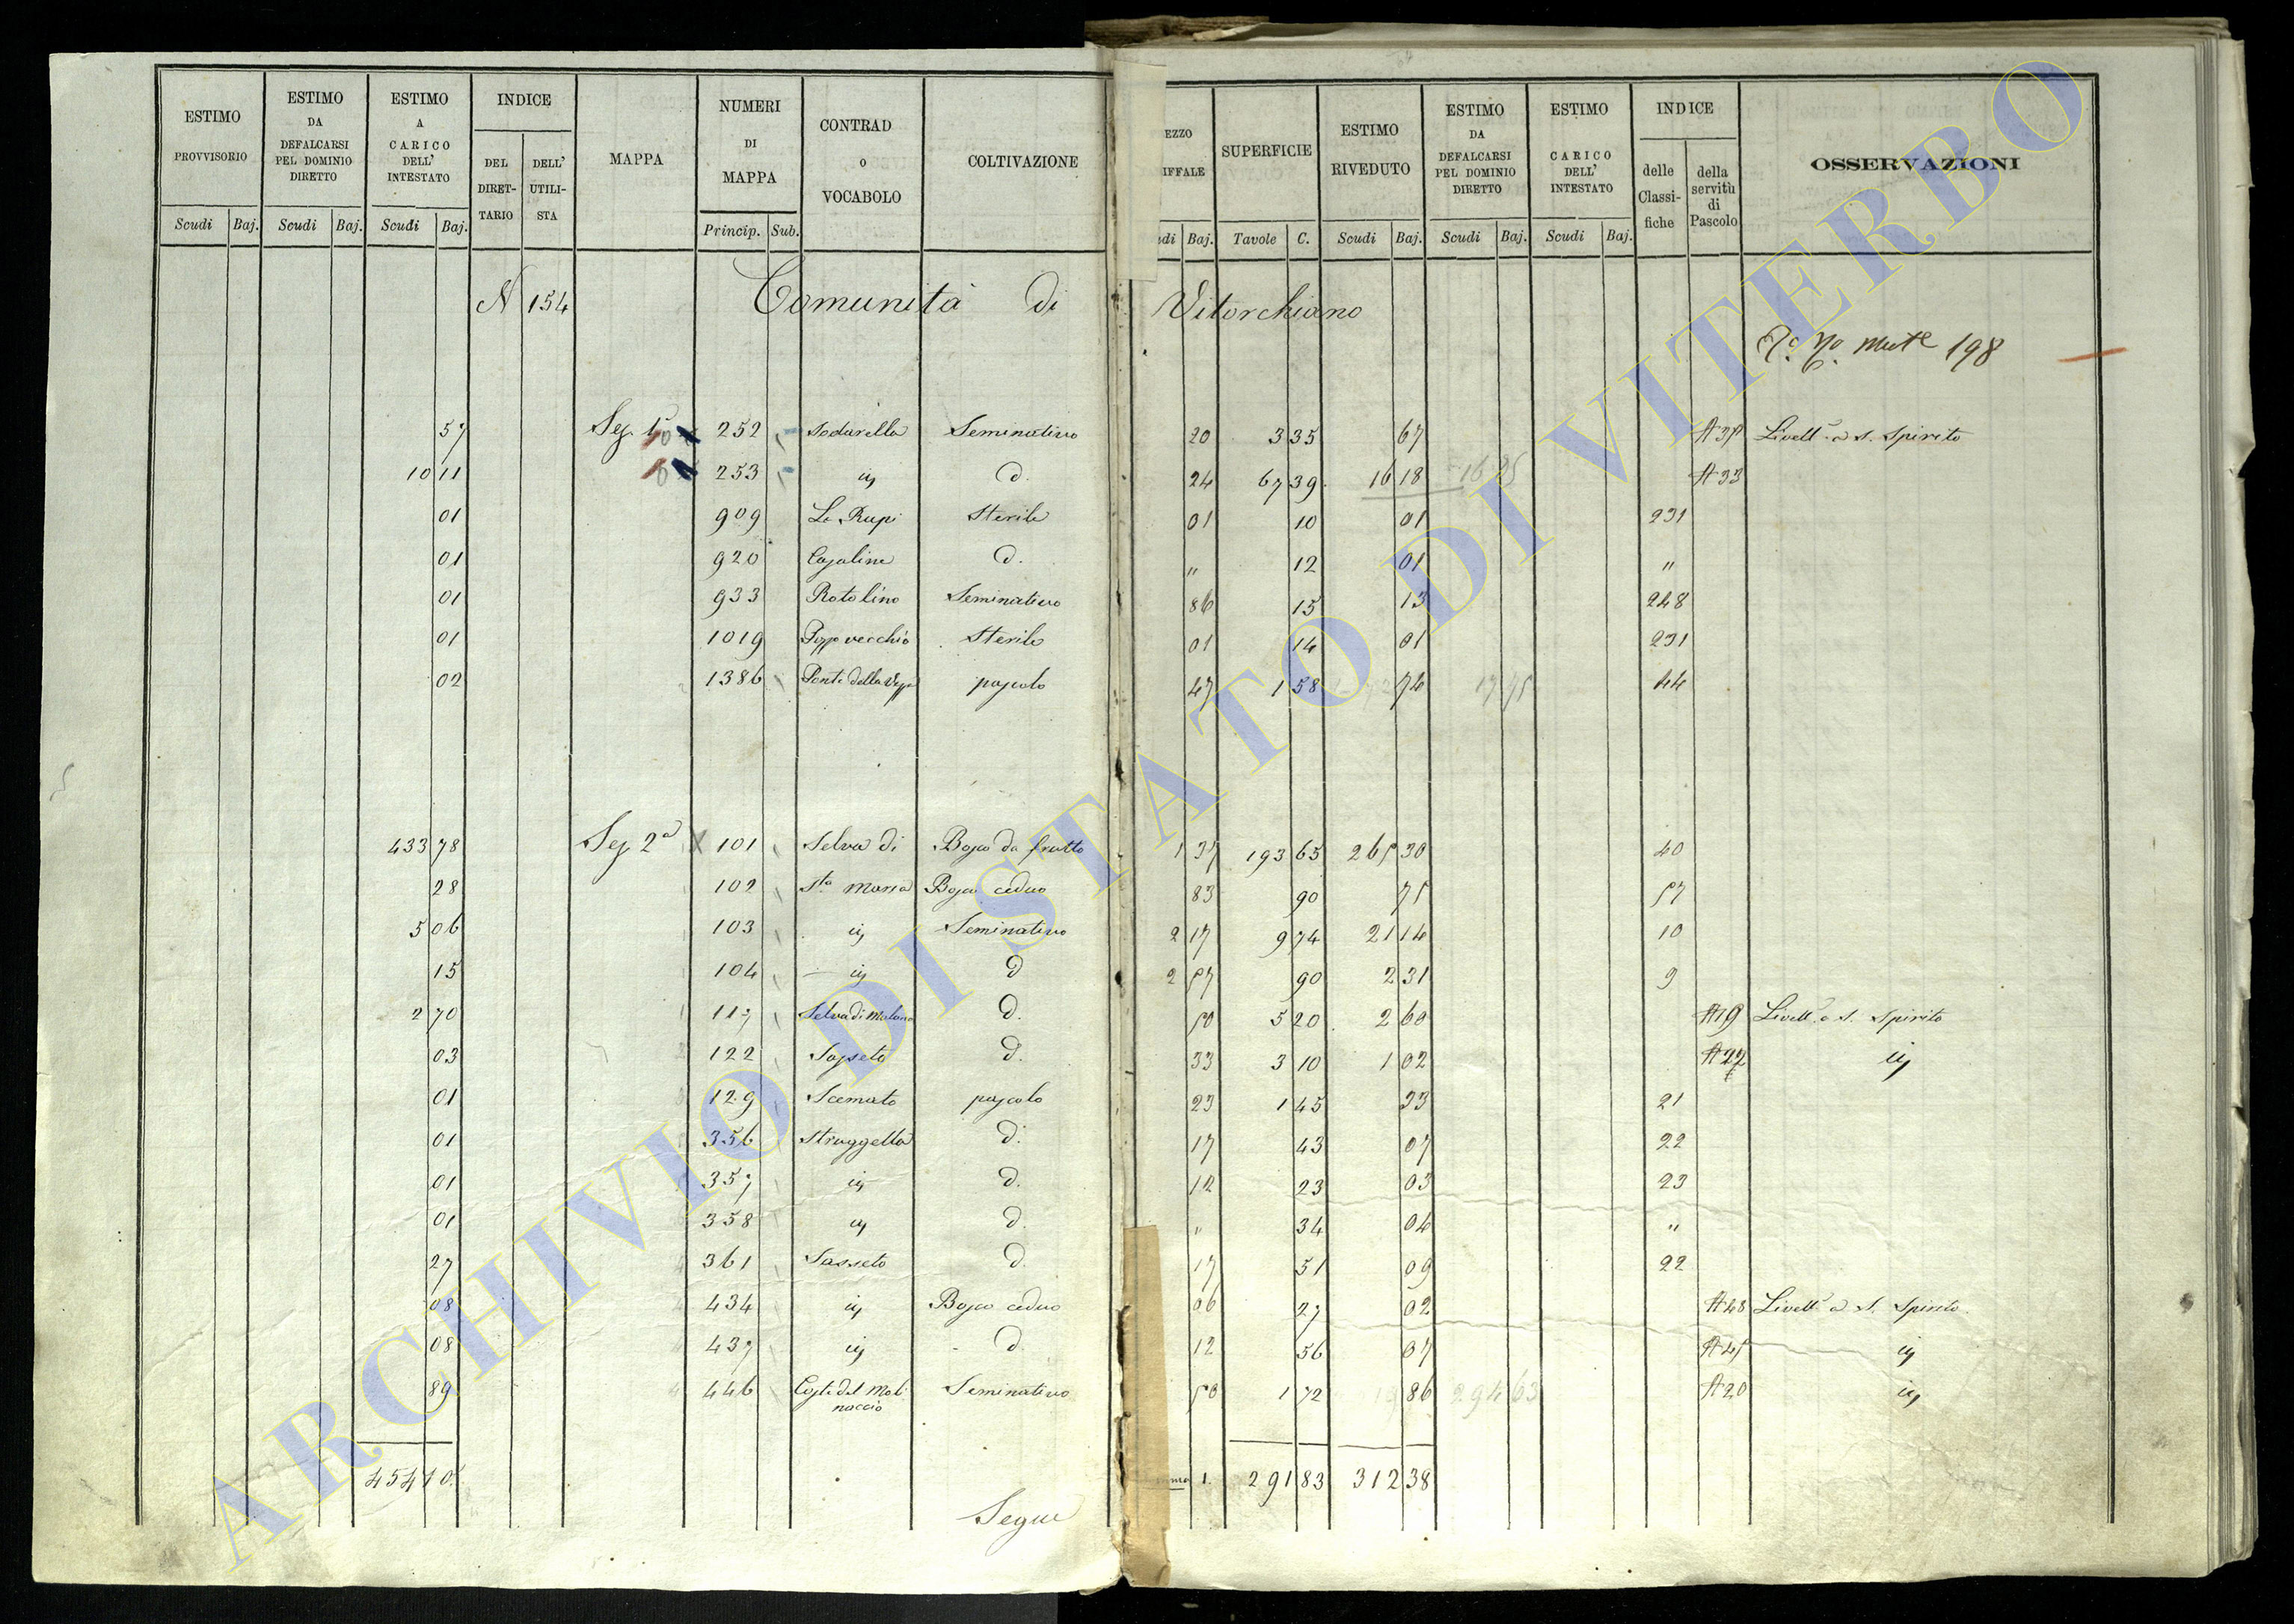 ESTIMO PROVVISORIO Scudi Baj.
ESTIMO DA DEFALCARSI PEL DOMINIO DIRETTO Scudi Baj.
ESTIMO A CARICO DELL' INTESTATO Scudi Baj.
INDICE DEL DIRETTARIO DELL' UTILISTA
MAPPA
NUMERI DI MAPPA Princip. Sub.
CONTRAD o VOCABOLO
COLTIVAZIONE
EZZO IFFALE di Baj.
SUPERFICIE Tavole C.
ESTIMO RIVEDUTO Scudi Baj.
ESTIMO DA DEFALCARSI PEL DOMINIO DIRETTO Scudi Baj.
ESTIMO A CARICO DELL' INTESTATO Scudi Baj.
INDICE delle Classifiche della servitù di Pascolo
OSSERVAZIONI
N 154 Comunità di Vitorchiano
198
57 Sez. 1ª 252 Sodarella Seminativo 20 3 35 67 Livell. a S. Spirito
10 11 253 id. d. 24 67 39 16 18 A 33
01 909 Le Rupi Sterile 01 10 01 231
01 920 d. " 12 01 "
01 933 Rotolino Seminativo 86 15 13 248
01 1019 Pozzo vecchio Sterile 01 14 01 231
02 1386 pascolo 47 1 58 74 44
433 78 Sez. 2ª 101 Selva di Bosco da frutto 1 37 193 65 265 30 40
28 102 Sta Maria Bosco ceduo 83 90 75 57
5 06 103 id. Seminativo 2 17 9 74 21 14 10
15 104 id. d. 2 57 90 2 31 9
2 70 117 Selva di d. 50 5 20 2 60 A 19 Livell. a S. Spirito
03 122 Sasseto d. 33 3 10 1 02 id.
01 129 Scemato pascolo 23 1 45 33 21
01 356 Struggetta d. 17 43 07 22
01 357 id. d. 12 23 03 23
01 358 id. d. " 34 04 "
27 361 Sasseto d. 17 51 09 22
08 434 id. Bosco ceduo 06 27 02 A 48 Livell. a S. Spirito
08 437 id. d. 12 56 07 A 45 id.
89 446 Coste del Molinaccio Seminativo 50 1 72 86 A 20 id.
454 10 1. 291 83 312 38
Segue
ARCHIVIO DI STATO DI VITERBO